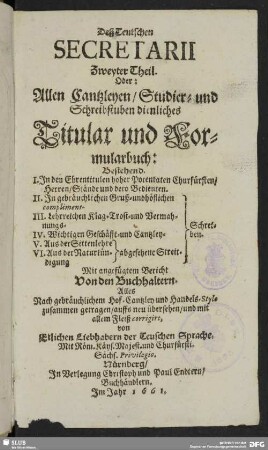 Deß Teutschen
SECRETARII
Zweyter Theil.
Oder:
Allen Cantzleyen/ Studier- und
Schreibstuben dienliches
Titular und For-
mularbuch:
Bestehend.
I. In den Ehrentituln hoher Potentaten Churfürsten/
Herren/ Stände und dero Bedienten.
II. In gebräuchlichen Gruß- und höflichen
compliment-
III. Lehrreichen Klag-Trost- und Vermah-
nungs-
IV. Wichtigen Geschäfft- und Cantzley-
Schrei-
ben.
V. Aus der Sittenlehre
VI. Aus der Naturkün-
digung
abgesehene Streit-
Mit angefügtem Bericht
Von den Buchhaltern.
Alles
Nach gebräuchlichem Hof-Cantzley und Handels-Stylo
zusammen getragen/ auffs neu übersehen/ und mit
allem Fleiß corrigirt,
von
Etlichen Liebhabern der Teutschen Sprache.
Mit Röm. Käys. Majest. und Churfürstl.
Sächs. Privilegio.
Nürnberg/
In Verlegung Christoph und Paul Endtern/
Buchhändlern.
Im Jahr 1661.
SLUB
DFG